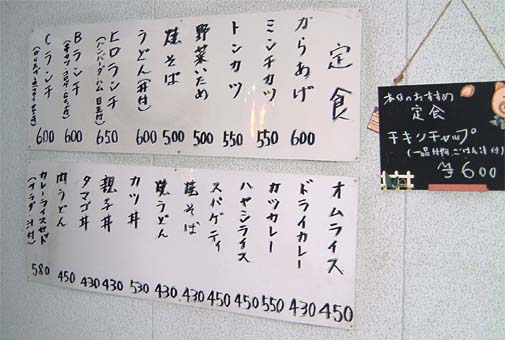 定食
からあげ 600
ミンチカツ 550
トンカツ 550
野菜いため 500
焼そば 500
うどん(丼付) 600
ヒロランチ 650
(ハンバーグ・ハム 目玉付)
Bランチ 600
Cランチ 600
オムライス 450
ドライカレー 430
カツカレー 550
ハヤシライス 450
スパゲティ 450
焼そば 430
焼うどん 430
カツ丼 530
親子丼 430
タマゴ丼 430
肉うどん 450
カレーライスセット 580
(サラダ・汁付)
本日のおすすめ
定食
チキンチャップ
(一品料理、ごはん汁付)
¥600